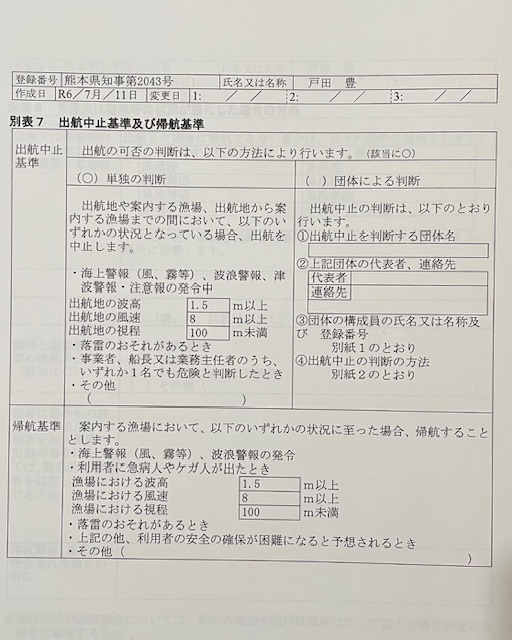 登録番号 熊本県知事第2043号 氏名又は名称 戸田 豊
作成日 R6/7月/11日 変更日 1: / / 2: / / 3: / /
別表7 出航中止基準及び帰航基準
出航中止基準 出航の可否の判断は、以下の方法により行います。(該当に○)
(○)単独の判断
出航地や案内する漁場、出航地から案
内する漁場までの間において、以下のい
ずれかの状況となっている場合、出航を
中止します。
・海上警報(風、霧等)、波浪警報、津
波警報・注意報の発令中
出航地の波高 1.5 m以上
出航地の風速 8 m以上
出航地の視程 100 m未満
・落雷のおそれがあるとき
・事業者、船長又は業務主任者のうち、
いずれか1名でも危険と判断したとき
・その他
( )
( )団体による判断
出航中止の判断は、以下のとおり
行います。
①出航中止を判断する団体名
②上記団体の代表者、連絡先
代表者
連絡先
③団体の構成員の氏名又は名称及
び 登録番号
別紙1のとおり
④出航中止の判断の方法
別紙2のとおり
帰航基準 案内する漁場において、以下のいずれかの状況に至った場合、帰航すること
とします。
・海上警報(風、霧等)、波浪警報の発令
・利用者に急病人やケガ人が出たとき
漁場における波高 1.5 m以上
漁場における風速 8 m以上
漁場における視程 100 m未満
・落雷のおそれがあるとき
・上記の他、利用者の安全の確保が困難になると予想されるとき
・その他( )